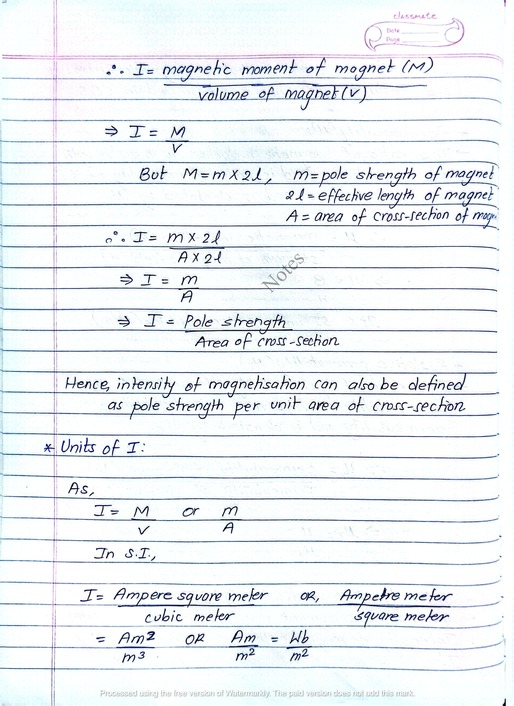 classmate
Date
Page
∴ I = magnetic moment of magnet (M)
volume of magnet (V)
⇒ I = M
V
But M = m X 2l, m = pole strength of magnet
2l = effective length of magnet
A = area of cross-section of magn
∴ I = m X 2l
A X 2l
⇒ I = m
A
Notes
⇒ I = Pole strength
Area of cross-section
Hence, intensity of magnetisation can also be defined
as pole strength per unit area of cross-section
* Units of I:
As,
I = M or m
V A
In S.I.,
I = Ampere square meter OR, Ampetre meter
cubic meter square meter
= Am2 OR Am = Wb
m3 m2 m2
Processed using the free version of Watermarkly. The paid version does not add this mark.